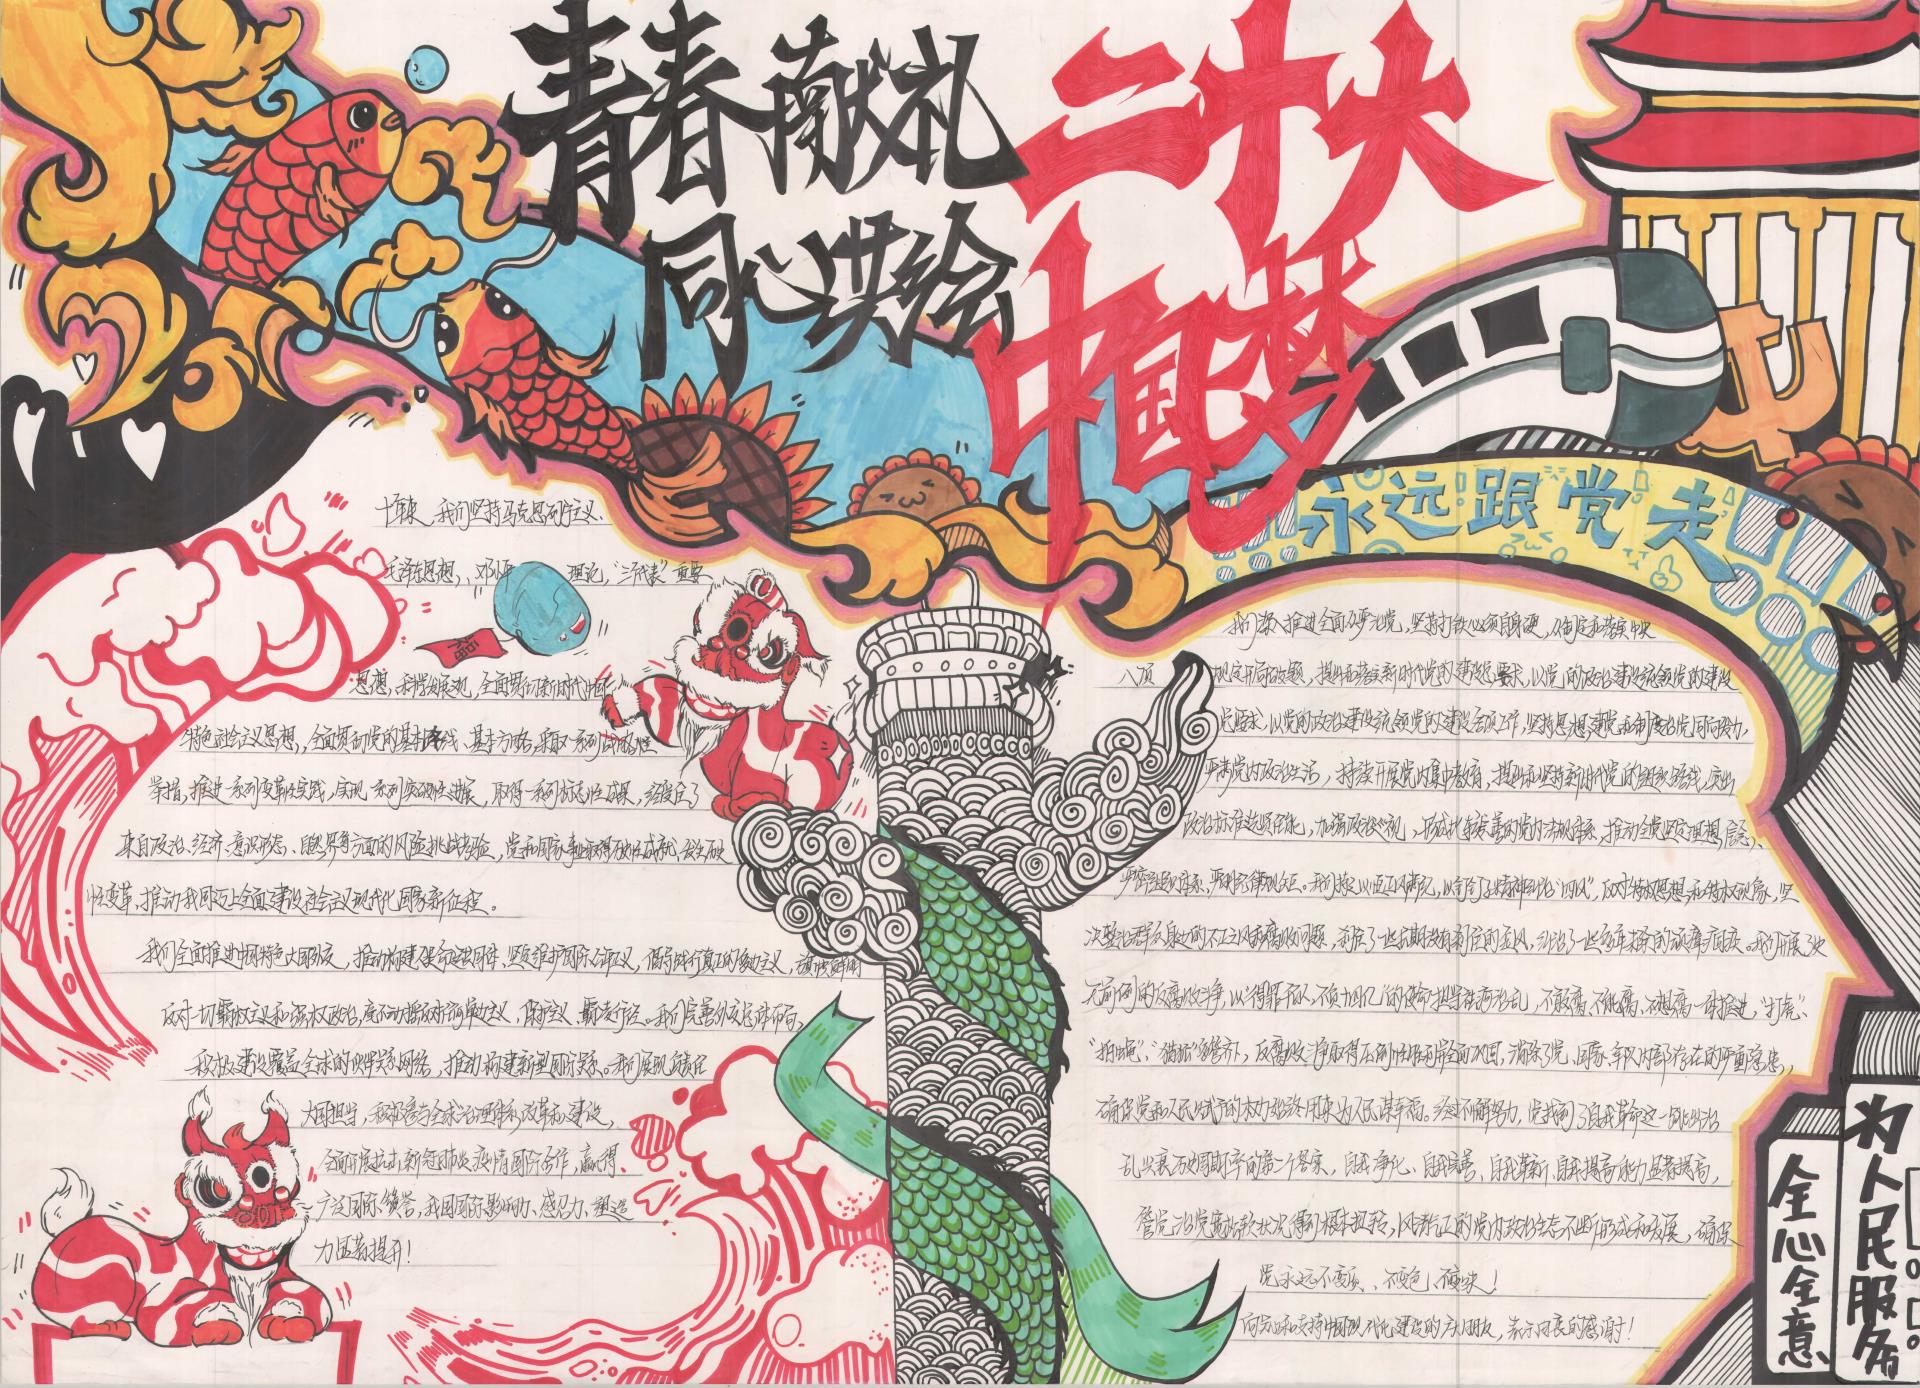 青春献礼二十大
同心共绘中国梦
永远跟党走
十年来，我们坚持马克思列宁主义、
毛泽东思想，邓小平理论，“三个代表”重要
福
思想，科学发展观，全面贯彻新时代中国
特色社会主义思想，全面贯彻党的基本路线、基本方略，采取一系列战略性
举措，推进一系列变革性实践，实现一系列突破性进展，取得一系列标志性成果，经受住了
来自政治、经济、意识形态、自然界等方面的风险挑战考验，党和国家事业取得历史性成就、发生历史
性变革，推动我国迈上全面建设社会主义现代化国家新征程。
我们全面推进中国特色大国外交，推动构建人类命运共同体，坚定维护国际公平正义，倡导践行真正的多边主义，旗帜鲜明
反对一切霸权主义和强权政治，毫不动摇反对任何单边主义，保护主义，霸凌行径。我们完善外交总体布局，
积极建设覆盖全球的伙伴关系网络，推动构建新型国际关系。我们展现负责任
大国担当，积极参与全球治理体系改革和建设，
全面开展抗击新冠肺炎疫情国际合作，赢得
广泛国际赞誉，我国国际影响力、感召力、塑造
力显著提升！
我们深入推进全面从严治党，坚持打铁必须自身硬，从制定和落实中央
八项规定开局破题，提出和落实新时代党的建设总要求，以党的政治建设统领党的建设
党要求，以党的政治建设统领党的建设各项工作，坚持思想建党和制度治党同向发力，
严肃党内政治生活，持续开展党内集中教育，提出和坚持新时代党的组织路线，突出
政治标准选贤任能，加强政治巡视，形成比较完善的党内法规体系，推动全党坚定理想信念、
严密组织体系、严明纪律规矩。我们持之以恒正风肃纪，以钉钉子精神纠治“四风”，反对特权思想和特权现象，坚
决整治群众身边的不正之风和腐败问题，刹住了一些长期没有刹住的歪风，纠治了一些多年未除的顽瘴痼疾。我们开展了史
无前例的反腐败斗争，以“得罪千百人、不负十四亿”的使命担当祛疴治乱，不敢腐、不能腐、不想腐一体推进，“打虎”、
“拍蝇”、“猎狐”多管齐下，反腐败斗争取得压倒性胜利并全面巩固，消除了党、国家、军队内部存在的严重隐患，
确保党和人民赋予的权力始终用来为人民谋幸福。经过不懈努力，党找到了自我革命这一跳出治
乱兴衰历史周期率的第二个答案，自我净化、自我完善、自我革新、自我提高能力显著提高，
管党治党宽松软状况得到根本扭转，风清气正的党内政治生态不断形成和发展，确保
党永远不变质、不变色、不变味！
为人民服务
全心全意